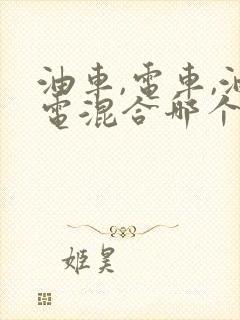 油車,電車,油
電混合哪个
姬昊